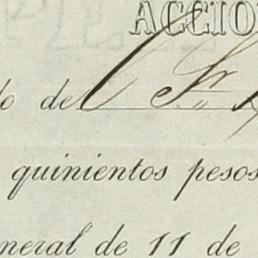 ACCION
do del Sr.
quinientos pesos
neral de 11 de